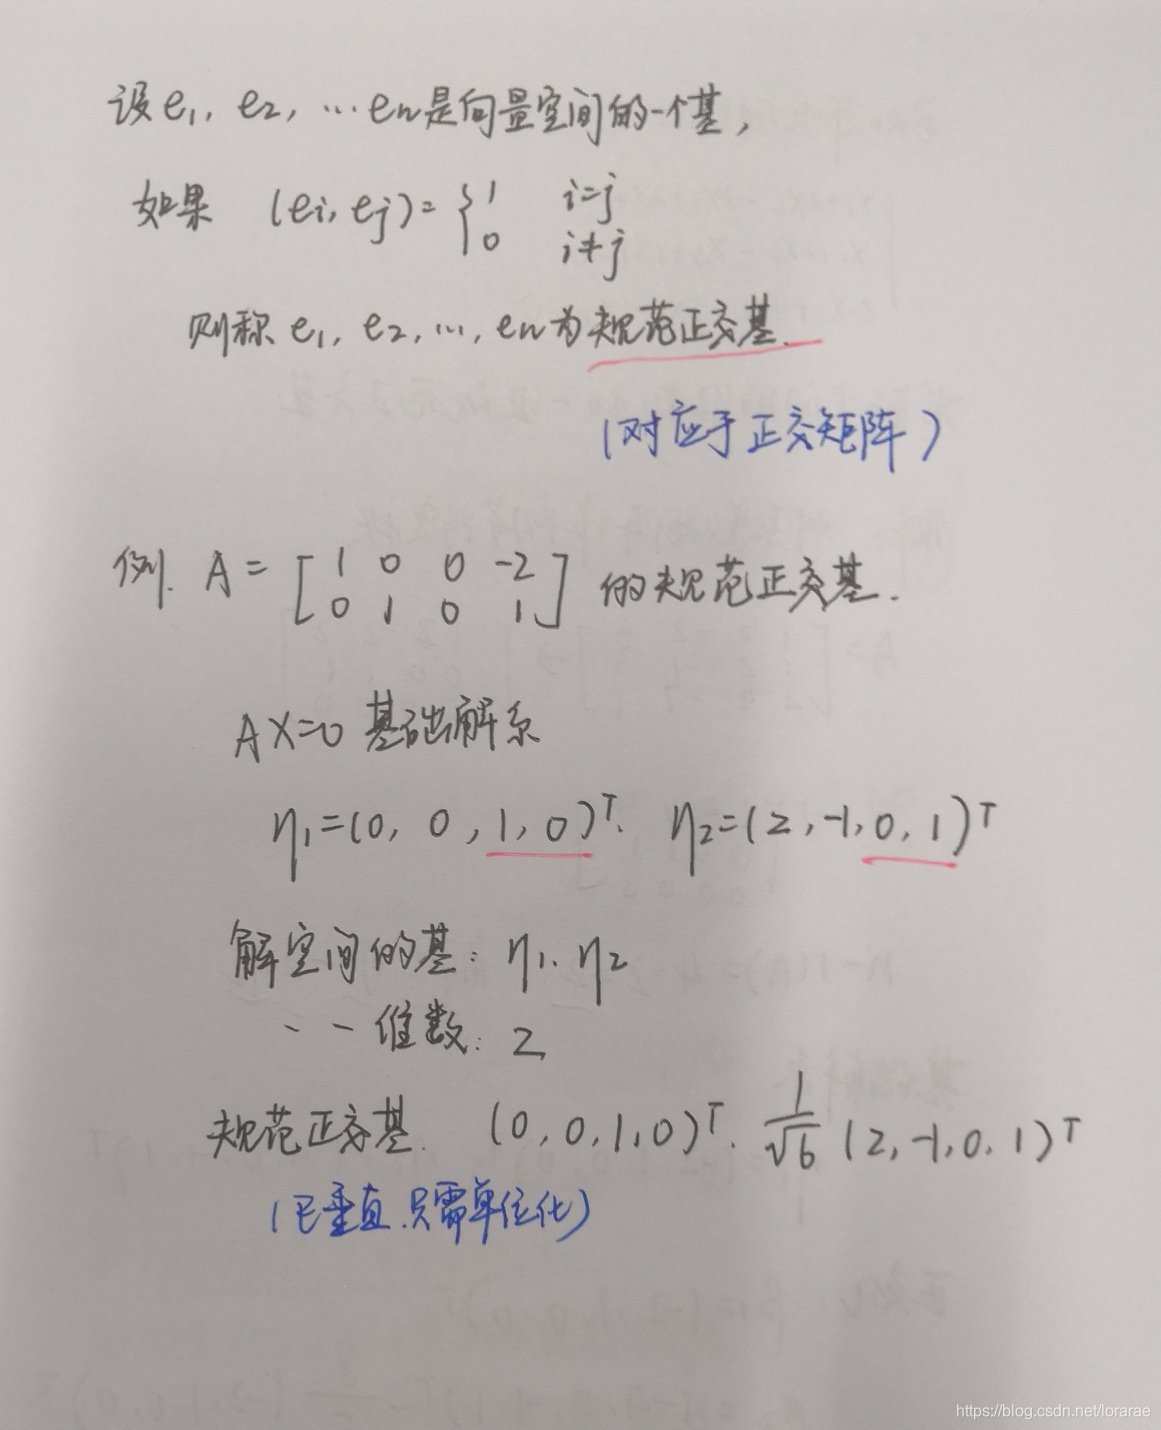 设e₁, e₂, …eₙ是向量空间的一个基,
如果 (eᵢ, eⱼ) = { 1 i=j
0 i≠j
则称 e₁, e₂, …, eₙ为规范正交基.
(对应于正交矩阵)
例. A = [ 1 0 0 -2
0 1 0 1 ] 的规范正交基.
AX=0 基础解系
η₁=(0, 0, 1, 0)ᵀ. η₂=(2, -1, 0, 1)ᵀ
解空间的基: η₁. η₂
、、 一 维数: 2
规范正交基. (0, 0, 1, 0)ᵀ. 1/√6 (2, -1, 0, 1)ᵀ
(已垂直.只需单位化)
https://blog.csdn.net/lorarae